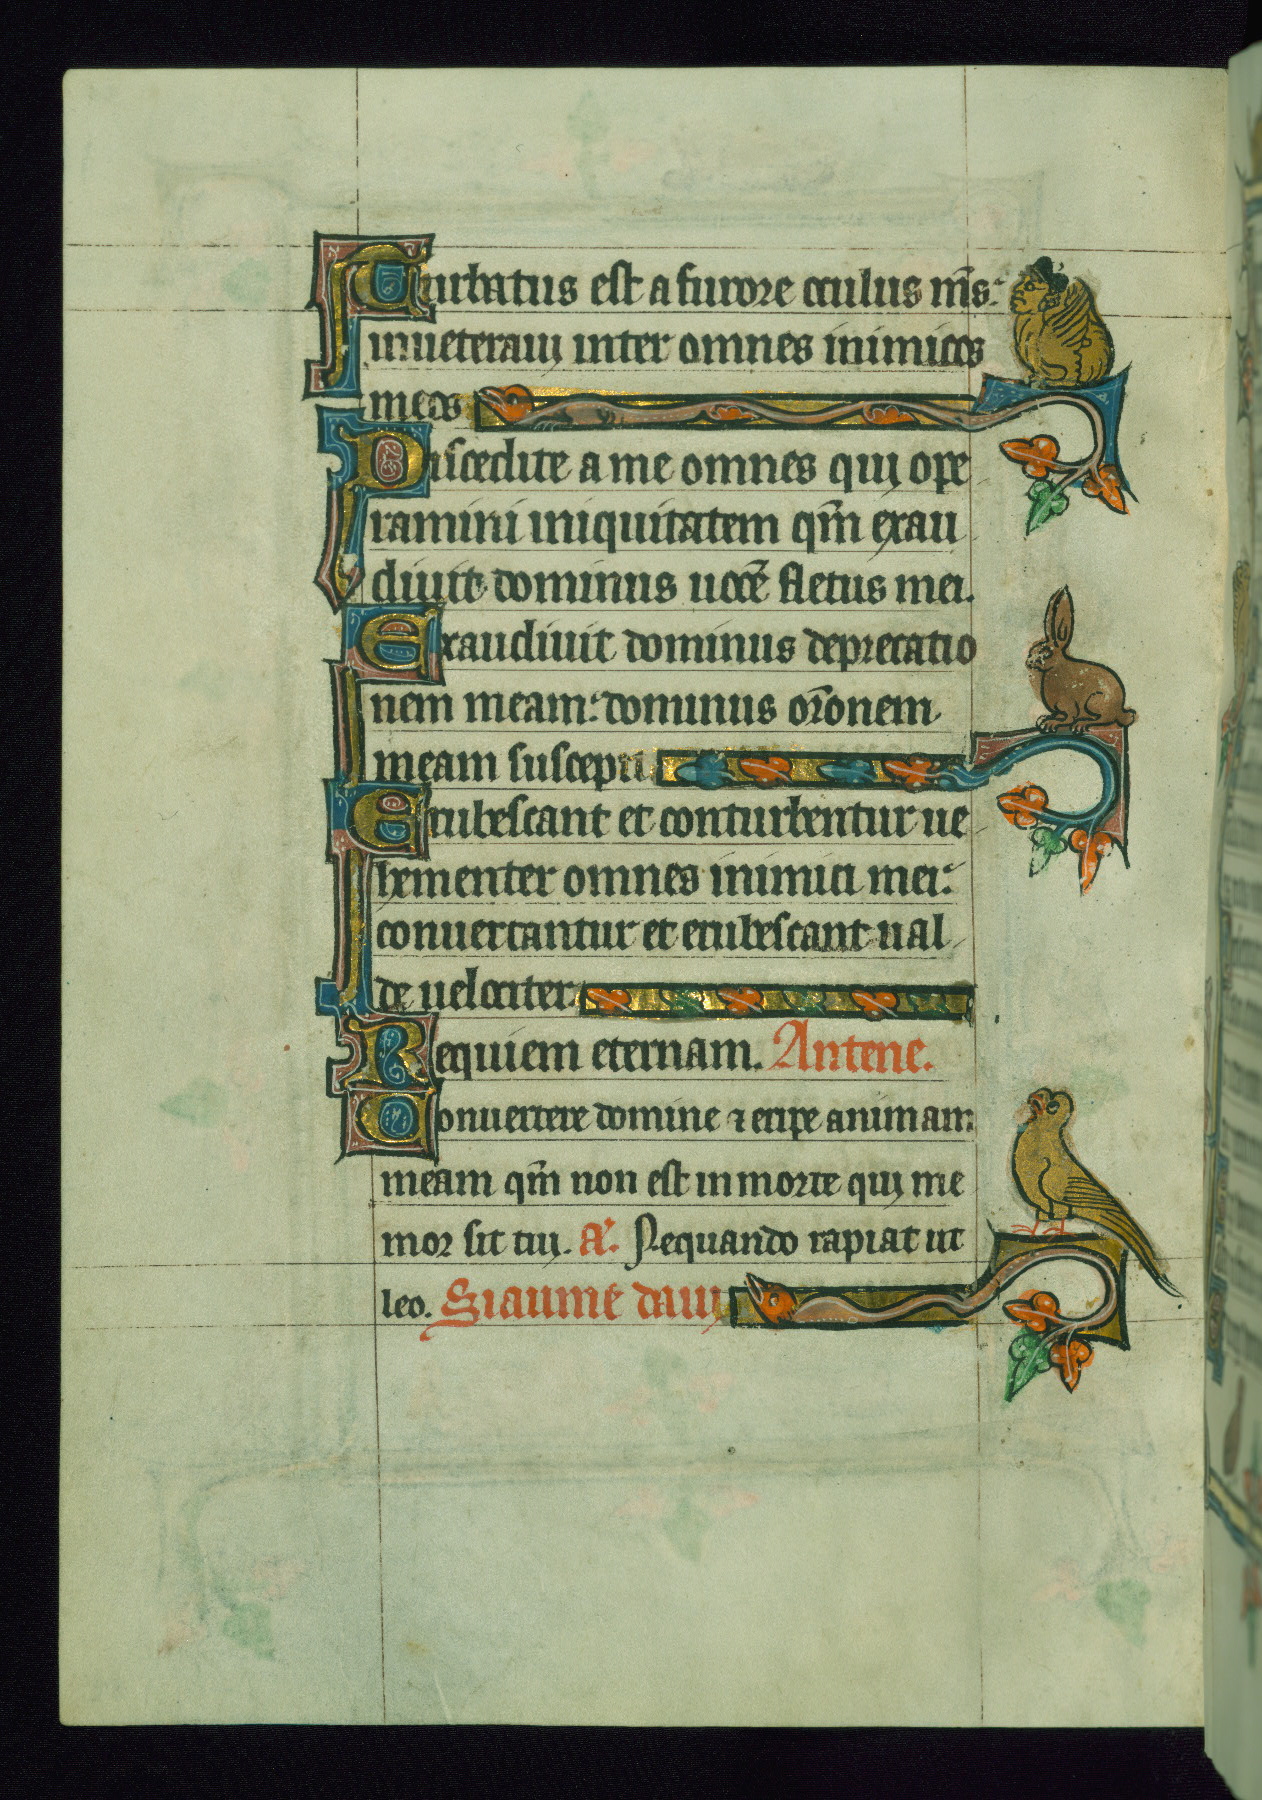 Turbatus est a furore oculus m̄s:
inueteraui inter omnes inimicos
meos
Discedite a me omnes qui ope
ramini iniquitatem qm̄ exau
diuit dominus uocē fletus mei.
Exaudiuit dominus deprecatio
nem meam: dominus or̄onem
meam suscepit
Erubescant et conturbentur ue
hementer omnes inimici mei:
conuertantur et erubescant ual
de uelociter:
Requiem eternam. Antene.
Conuertere domine ⁊ eripe animam
meam qm̄ non est in morte qui me
mor sit tui. A'. Nequando rapiat ut
leo. Siaume daui